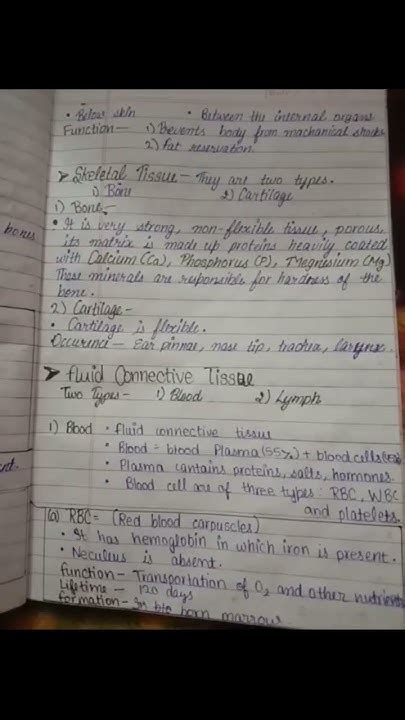 • Below skin • Between the internal organs
Function — 1) Prevents body from machanical shocks
2) Fat reservation.
➤ Skeletal Tissue — They are two types.
1) Bone 2) Cartilage
1) Bone —
• It is very strong, non-flexible tissue, porous,
its matrix is made up proteins heavily coated
with Calcium (Ca), Phosphorus (P), Magnesium (Mg)
These minerals are responsible for hardness of the
bone.
2) Cartilage —
• Cartilage is flexible.
Occurence — Ear pinnae, nose tip, trachea, larynx.
➤ Fluid Connective Tissue
Two Types — 1) Blood 2) Lymph
1) Blood • fluid connective tissue
• Blood = blood Plasma (55%) + blood cells (45%)
• Plasma cantains proteins, salts, hormones.
• Blood cell are of three types : RBC, WBC
and platelets.
(a) RBC = (Red blood carpuscles)
• It has hemoglobin in which iron is present.
• Neculeus is absent.
Function — Transportation of O2 and other nutrients
Lifetime — 120 days
formation — In bone marrow
bones